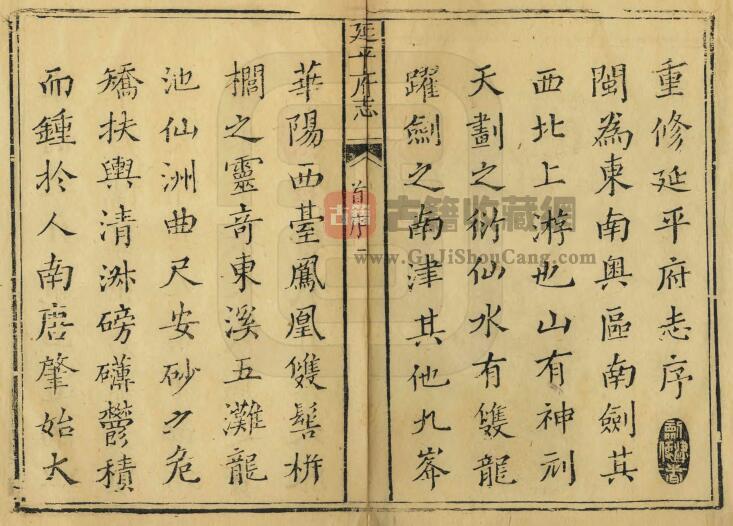 重修延平府志序
閩為東南奧區南劍其
西北上游也山有神剜
天劃之衍仙水有雙龍
躍劍之南津其他九峯
延平府志
首序
二
華陽西臺鳳凰雙髻栟
櫚之靈奇東溪五灘龍
池仙洲曲尺安砂力危
矯扶輿清淑磅礴鬱積
而鍾於人南唐肇始大
古籍
古籍收藏網
www.GuJiShouCang.com